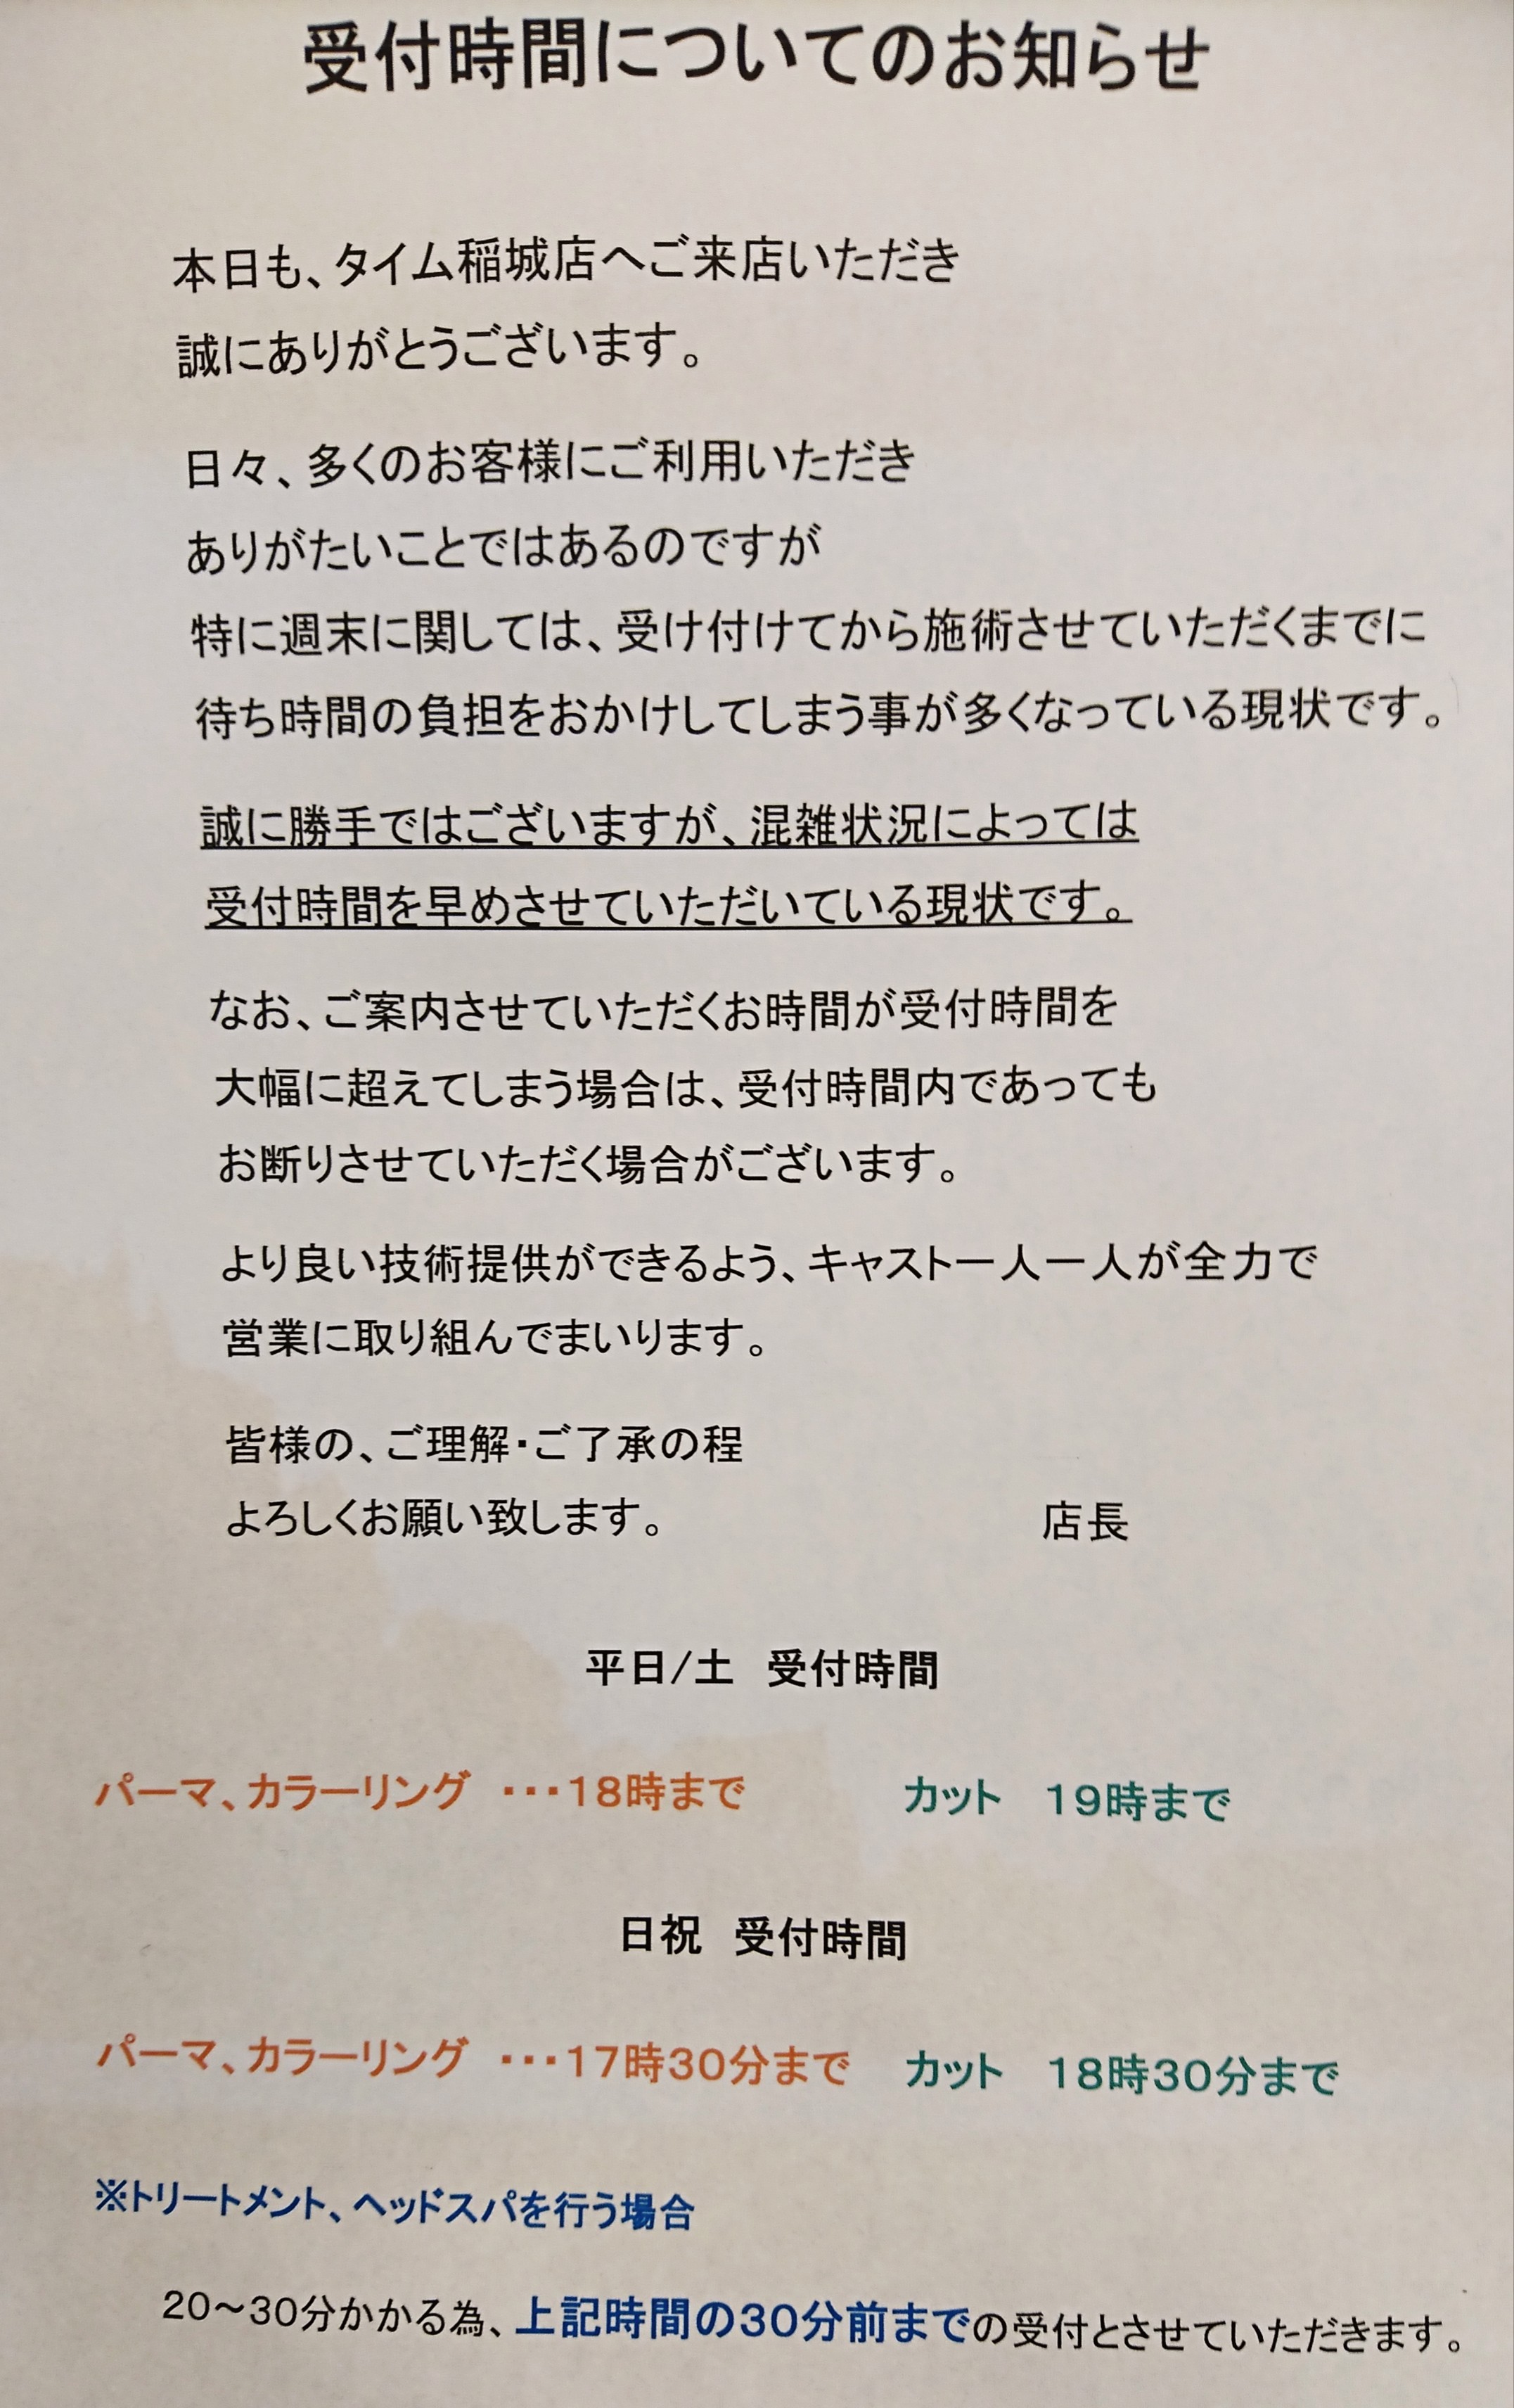 受付時間についてのお知らせ
本日も、タイム稲城店へご来店いただき
誠にありがとうございます。
日々、多くのお客様にご利用いただき
ありがたいことではあるのですが
特に週末に関しては、受け付けてから施術させていただくまでに
待ち時間の負担をおかけしてしまう事が多くなっている現状です。
誠に勝手ではございますが、混雑状況によっては
受付時間を早めさせていただいている現状です。
なお、ご案内させていただくお時間が受付時間を
大幅に超えてしまう場合は、受付時間内であっても
お断りさせていただく場合がございます。
より良い技術提供ができるよう、キャスト一人一人が全力で
営業に取り組んでまいります。
皆様の、ご理解・ご了承の程
よろしくお願い致します。　店長
平日/土　受付時間
パーマ、カラーリング　・・・18時まで　カット　19時まで
日祝　受付時間
パーマ、カラーリング　・・・17時30分まで　カット　18時30分まで
※トリートメント、ヘッドスパを行う場合
20～30分かかる為、上記時間の30分前までの受付とさせていただきます。